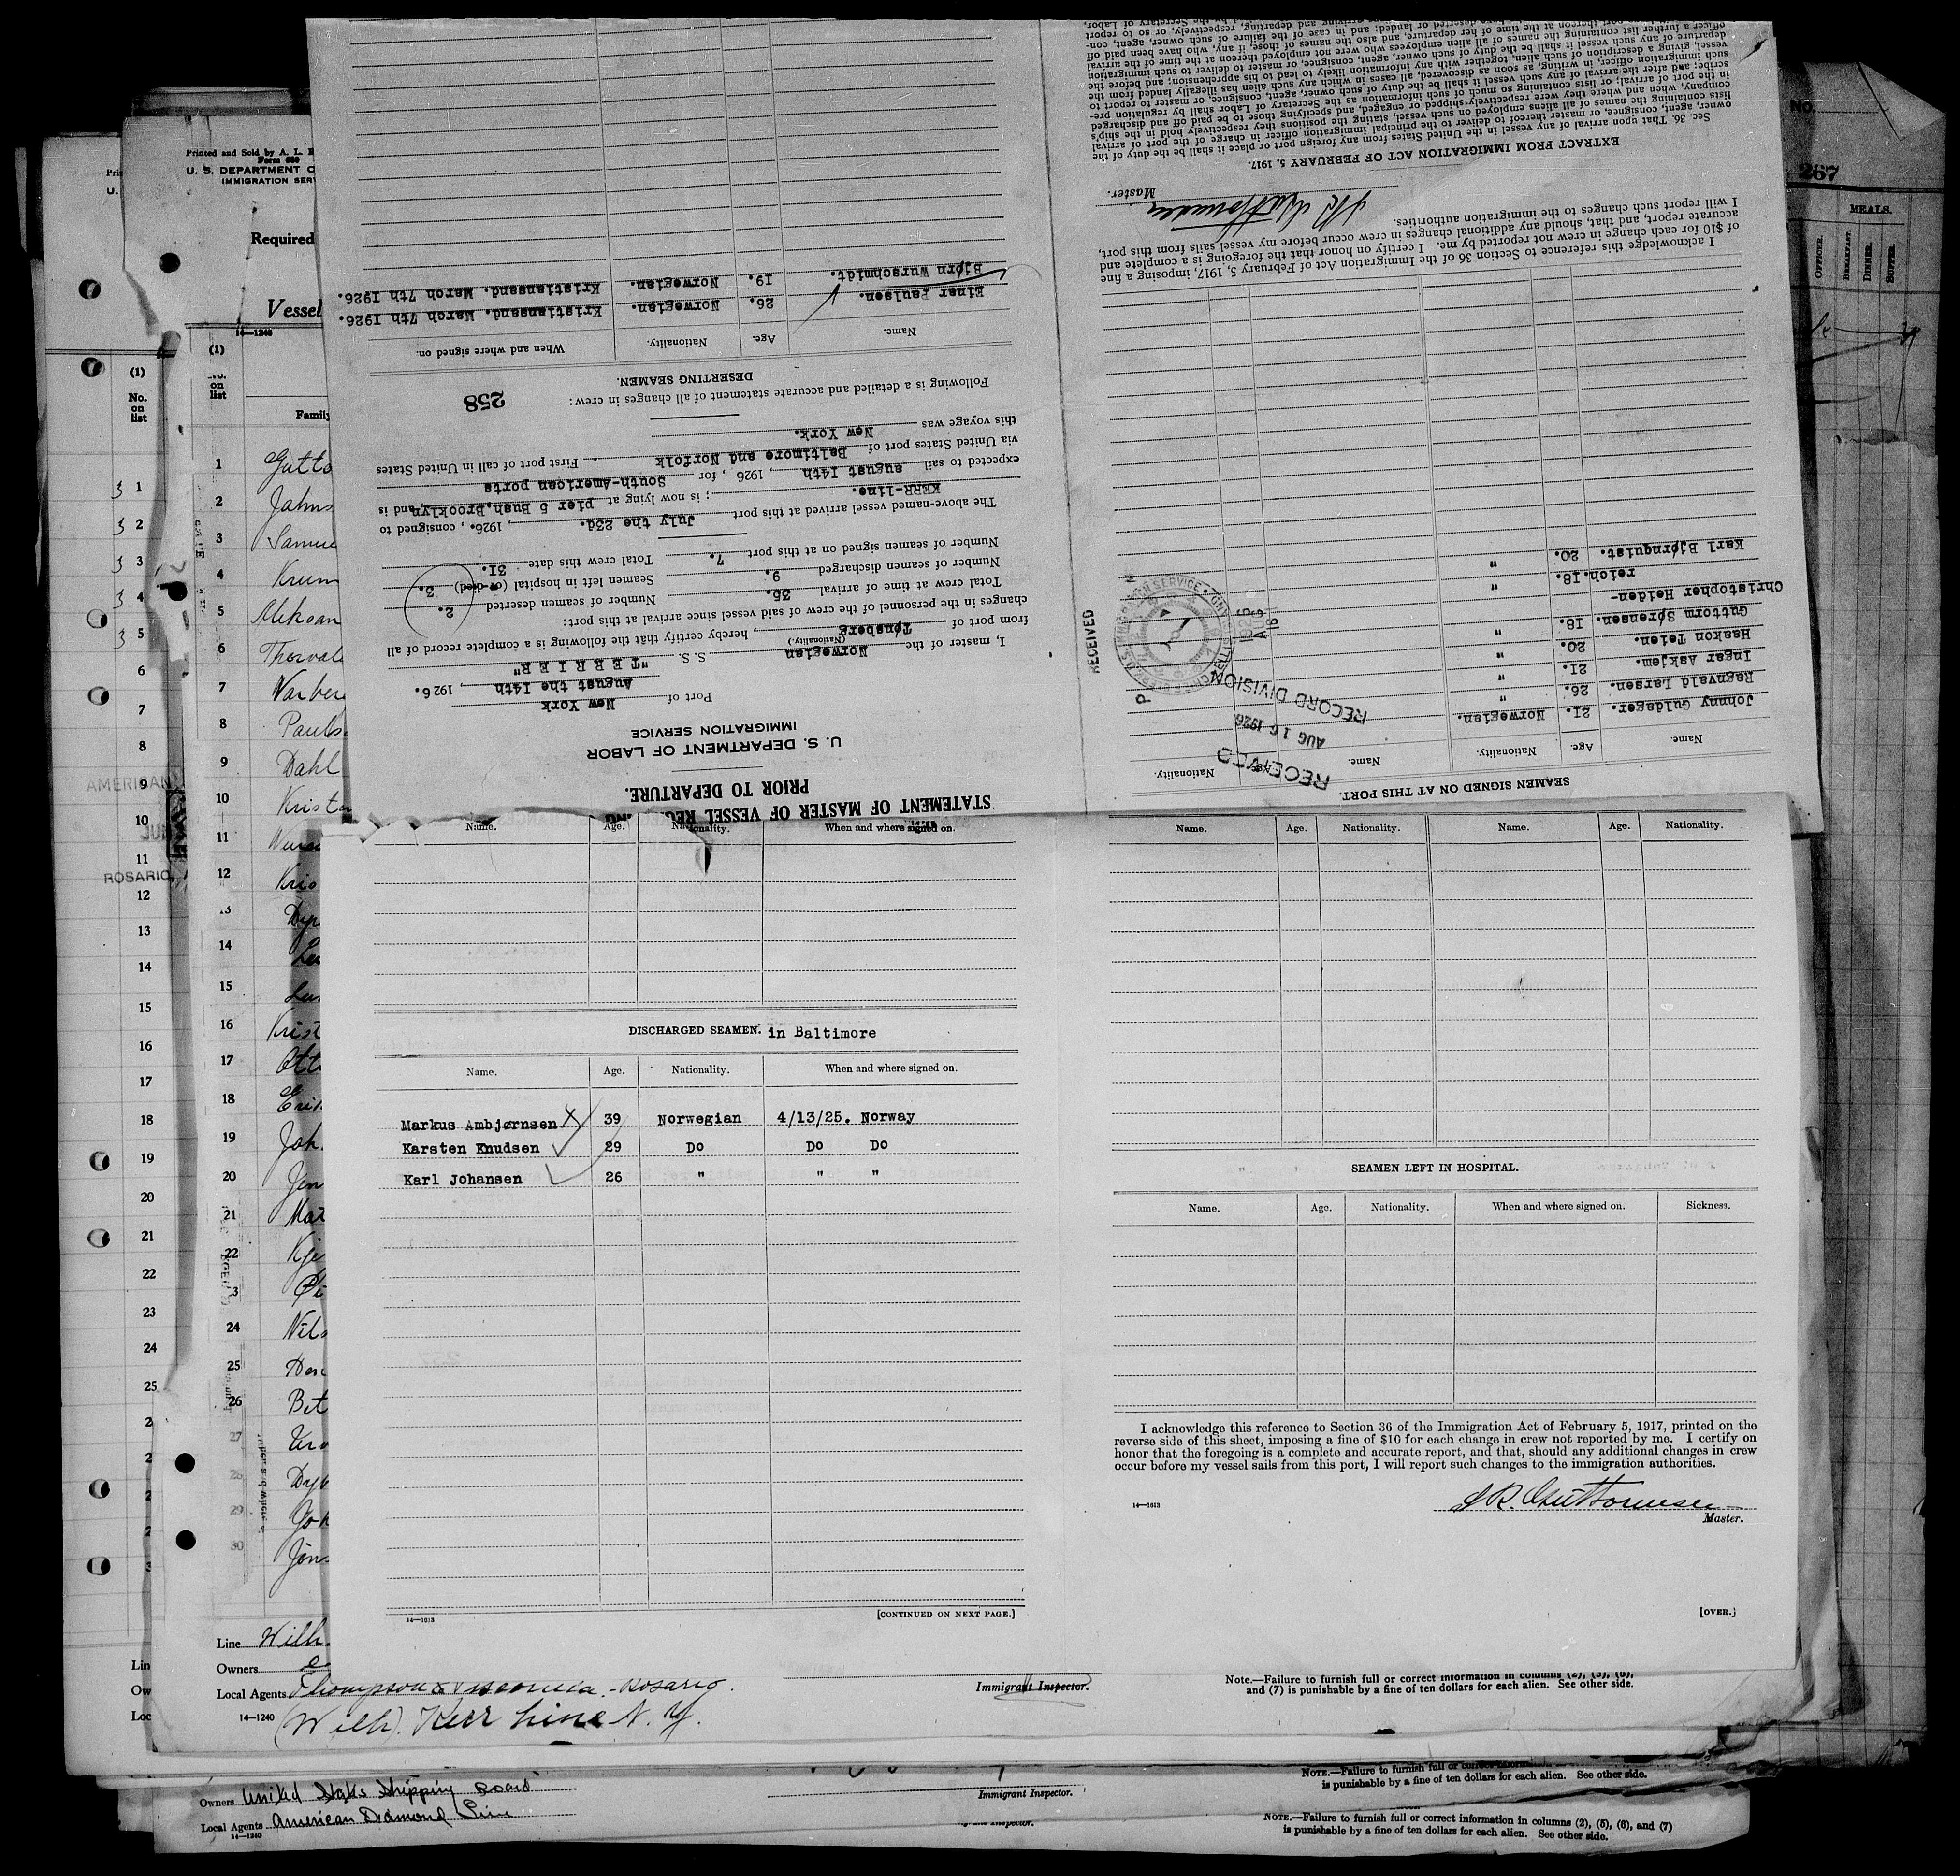 STATEMENT OF MASTER OF VESSEL
PRIOR TO DEPARTURE.
U. S. DEPARTMENT OF LABOR
IMMIGRATION SERVICE
Port of New York
August the 14th, 1926.
I, master of the Norwegian S. S. "TERRIER"
(Nationality.)
from port of Tønsberg, hereby certify that the following is a complete record of all
changes in the personnel of the crew of said vessel since arrival at this port:
Total crew at time of arrival 35. Number of seamen deserted 2.
Number of seamen discharged 9. Seamen left in hospital (or died)
Number of seamen signed on at this port 7. Total crew this date 31.
The above-named vessel arrived at this port July the 23d., 1926., consigned to
KERR-line.; is now lying at pier 5 Bush, Brooklyn and is
expected to sail august 14th, 1926, for South-American ports
via United States port of Baltimore and Norfolk. First port of call in United States
this voyage was New York.
Following is a detailed and accurate statement of all changes in crew:
258
DESERTING SEAMEN.
Name. Age. Nationality. When and where signed on.
Einar Paulsen. 26. Norwegian. Kristiansand. March 7th 1926.
Bjørn Wurschmidt. 19. Norwegian. Kristiansand. March 7th 1926.
SEAMEN SIGNED ON AT THIS PORT.
Name. Age. Nationality. Name. Age. Nationality.
Johnny Guldager. 21. Norwegian.
Ragnvald Larsen. 26. "
Ingar Askjem. 21. "
Haakon Teien. 20. "
Guttorm Sørensen. 18. "
Christopher Heiden-
reich. 18. "
Karl Bjørnquist. 20. "
RECEIVED
AUG 16 1926
RECORD DIVISION
RECEIVED
I acknowledge this reference to Section 36 of the Immigration Act of February 5, 1917, imposing a fine
of $10 for each change in crew not reported by me. I certify on honor that the foregoing is a complete and
accurate report, and that, should any additional changes in crew occur before my vessel sails from this port,
I will report such changes to the immigration authorities.
Master.
EXTRACT FROM IMMIGRATION ACT OF FEBRUARY 5, 1917.
Sec. 36. That upon arrival of any vessel in the United States from any foreign port or place it shall be the duty of the
owner, agent, consignee, or master thereof to deliver to the principal immigration officer in charge of the port of arrival
lists containing the names of all aliens employed on such vessel, stating the positions they respectively hold in the ship's
company, when and where they were respectively shipped or engaged, and specifying those to be paid off and discharged
in the port of arrival; or lists containing so much of such information as the Secretary of Labor shall by regulation pre-
scribe; and after the arrival of any such vessel it shall be the duty of such owner, agent, consignee, or master to report to
such immigration officer, in writing, as soon as discovered, all cases in which any such alien has illegally landed from the
vessel, giving a description of such alien, together with any information likely to lead to his apprehension; and before the
departure of any such vessel it shall be the duty of such owner, agent, consignee, or master to deliver to such immigration
officer a further list containing the names of all alien employees who were not employed thereon at the time of the arrival
Name. Age. Nationality. When and where signed on.
Name. Age. Nationality. Name. Age. Nationality.
DISCHARGED SEAMEN. in Baltimore
Name. Age. Nationality. When and where signed on.
Markus Ambjørnsen 39 Norwegian 4/13/25. Norway
Karsten Knudsen 29 Do Do Do
Karl Johansen 26 " " "
14—1613
[CONTINUED ON NEXT PAGE.]
SEAMEN LEFT IN HOSPITAL.
Name. Age. Nationality. When and where signed on. Sickness.
I acknowledge this reference to Section 36 of the Immigration Act of February 5, 1917, printed on the
reverse side of this sheet, imposing a fine of $10 for each change in crew not reported by me. I certify on
honor that the foregoing is a complete and accurate report, and that, should any additional changes in crew
occur before my vessel sails from this port, I will report such changes to the immigration authorities.
14—1613
Master.
[OVER.]
Printed and Sold by A. L.
Form 680
U. S. DEPARTMENT
IMMIGRATION SERV
Required
Vessel
14—1240
(1)
No.
on
list
Family
1
2
3
4
5
6
7
8
9 Dahl
10
11
12
13
14
15
16
17
18
19
20
21
22
23
24
25
26
27
28
29
30
Line Wilh
Owners
Local Agents Thompson & - Rosario.
14—1240 (Wilh). Kerr Line N. Y.
Immigrant Inspector.
Note.—Failure to furnish full or correct information in columns (2), (5), (6),
and (7) is punishable by a fine of ten dollars for each alien. See other side.
Owners United States Shipping Board
Local Agents American Diamond Line
14—1240
Immigrant Inspector.
Note.—Failure to furnish full or correct information
is punishable by a fine of ten dollars for each alien. See other side.
Note.—Failure to furnish full or correct information in columns (2), (5), (6), and (7)
is punishable by a fine of ten dollars for each alien. See other side.
No.
267
MEALS.
OFFICER.
BREAKFAST.
DINNER.
SUPPER.
AMERICAN
ROSARIO